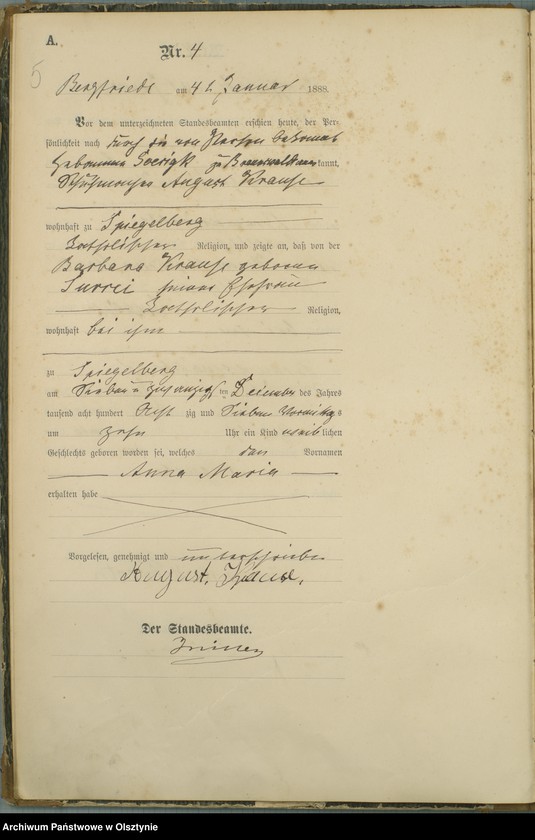 A.
Nr. 4
5
Bergfriede am 4t Januar 1888.
Vor dem unterzeichneten Standesbeamten erschien heute, der Per-
sönlichkeit nach durch die von Person bekannt
Hebamme zu kannt,
Schuhmacher August Krause
wohnhaft zu Spiegelberg
katholischer Religion, und zeigte an, daß von der
Barbara Krause geboren
seine Ehefrau
katholischer Religion,
wohnhaft bei ihm
zu Spiegelberg
am Sieben u zwanzigsten Dezember des Jahres
tausend acht hundert Acht zig und Sieben Vormittags
um zehn Uhr ein Kind weiblichen
Geschlechts geboren worden sei, welches den Vornamen
Anna Maria
erhalten habe
Vorgelesen, genehmigt und unterschrieben
August, Krause,
Der Standesbeamte.
Archiwum Państwowe w Olsztynie